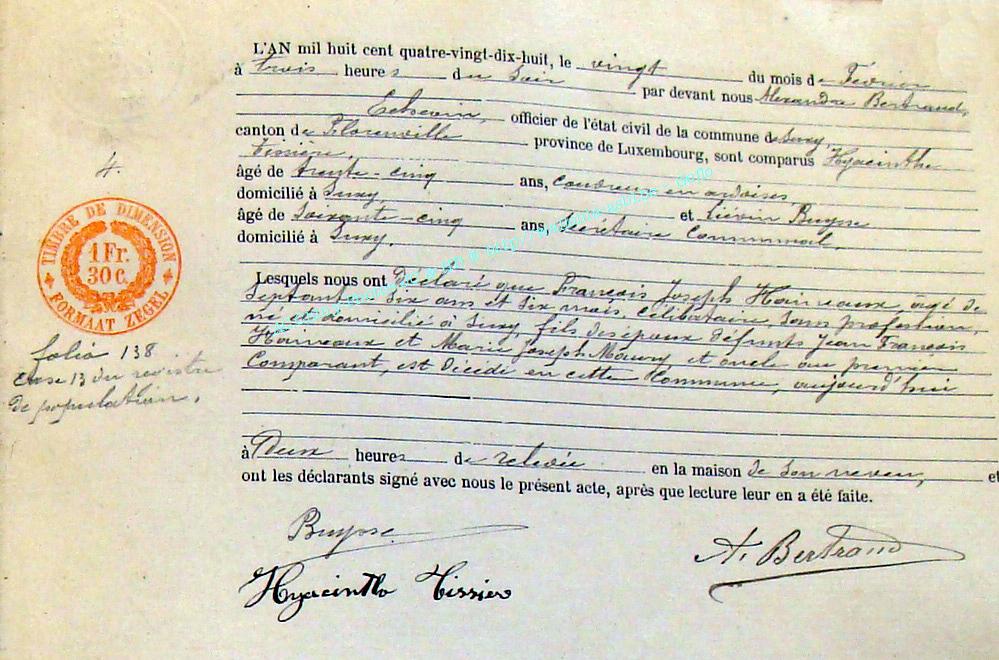 L'AN mil huit cent quatre-vingt-dix-huit, le vingt du mois de Février
à trois heures du soir par devant nous Alexandre Bertrand,
Echevin, officier de l'état civil de la commune de Suxy
canton de Florenville province de Luxembourg, sont comparus Hyacinthe
Tissier,
âgé de trente-cinq ans, couvreur en ardoises
domicilié à Suxy et Liévin Buysse
âgé de Soixante-cinq ans, Secrétaire Communal,
domicilié à Suxy.
Lesquels nous ont Déclaré que François Joseph Hainaux, agé de
Septante Six ans et Six mois, Célibataire, Sans profession,
né et domicilié à Suxy, fils des époux défunts Jean François
et Marie Joseph Maury et oncle au premier
Comparant, est Décédé en cette Commune, aujourd'hui
à Deux heures de relevée en la maison de Son neveu, et
ont les déclarants signé avec nous le présent acte, après que lecture leur en a été faite.
Buysse
A. Bertrand
Hyacinthe Tissier
4.
TIMBRE DE DIMENSION
1 Fr.
30 C.
FORMAAT ZEGEL
folio 138
case 13 du registre
De population.